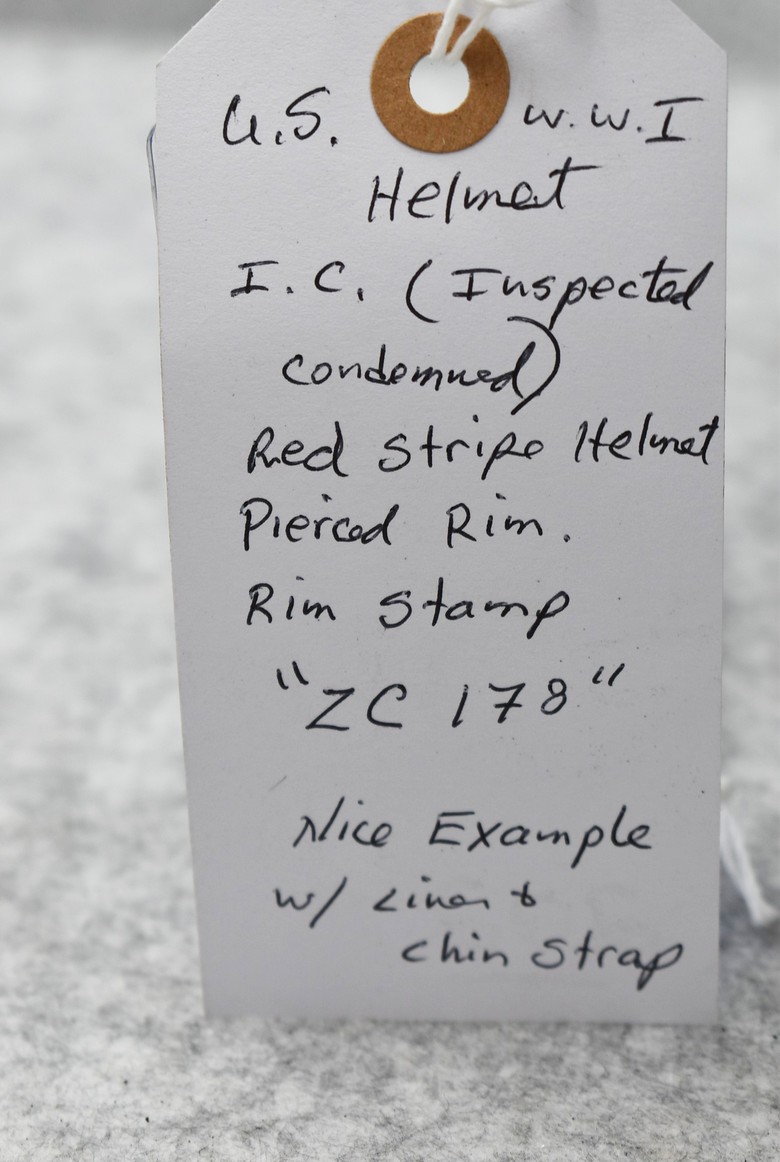 U.S. W.W.I
Helmet
I.C. (Inspected
condemned)
Red stripe Helmet
Pierced Rim.
Rim stamp
"ZC 178"
Nice Example
w/ Liner &
chin strap